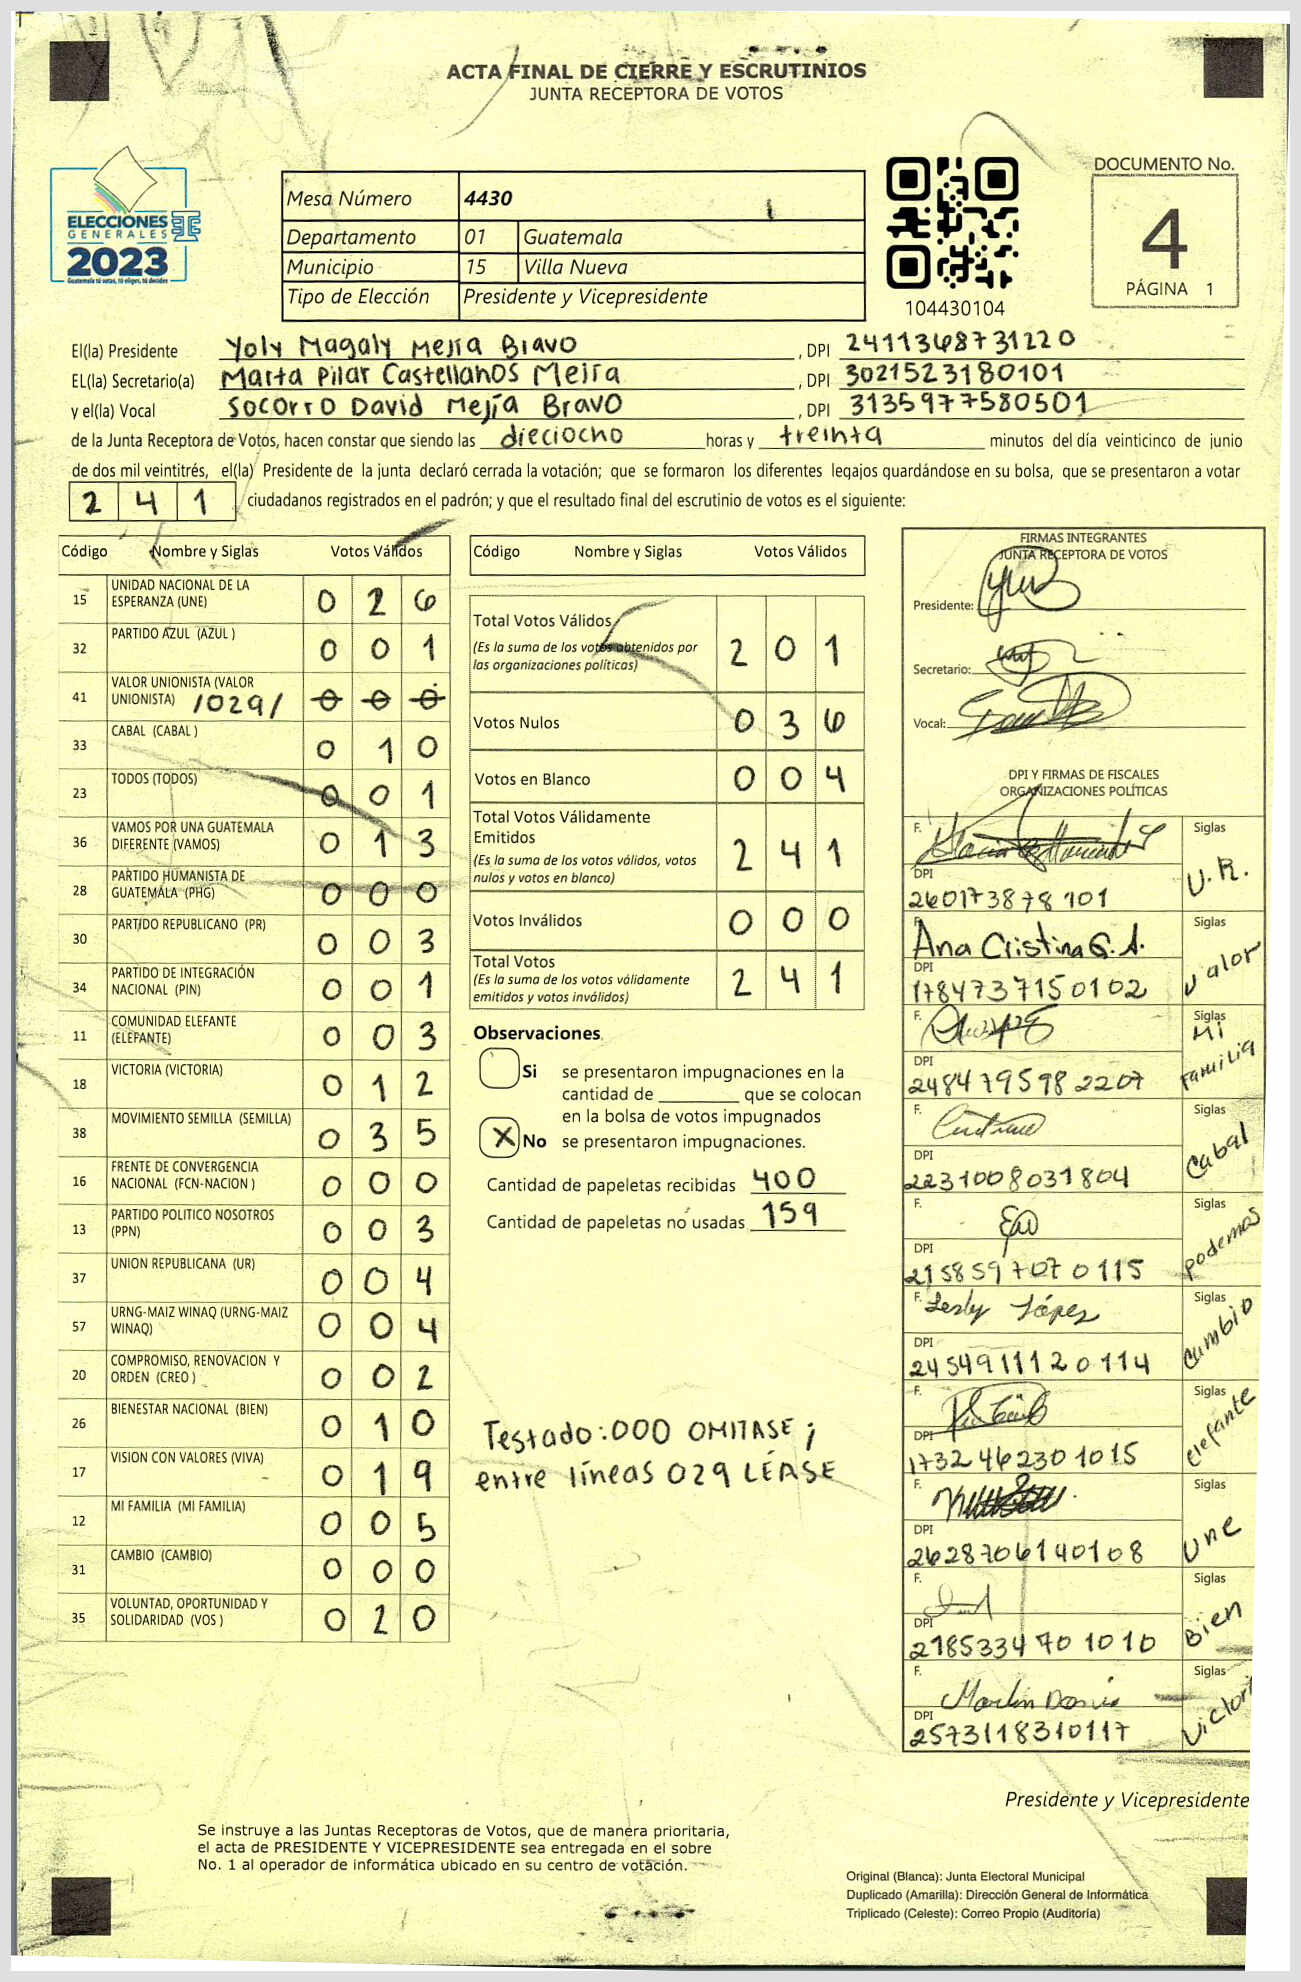 ACTA FINAL DE CIERRE Y ESCRUTINIOS
JUNTA RECEPTORA DE VOTOS
ELECCIONES
GENERALES
2023
Guatemala tú votas, tú eliges, tú decides
Mesa Número 4430
Departamento 01 Guatemala
Municipio 15 Villa Nueva
Tipo de Elección Presidente y Vicepresidente
104430104
DOCUMENTO No.
4
PÁGINA 1
El(la) Presidente Yoly Magaly Mejía Bravo , DPI 2411368731220
EL(la) Secretario(a) Marta Pilar Castellanos Mejía , DPI 3021523180101
y el(la) Vocal Socorro David Mejía Bravo , DPI 3135977580501
de la Junta Receptora de Votos, hacen constar que siendo las dieciocho horas y treinta minutos del día veinticinco de junio
de dos mil veintitrés, el(la) Presidente de la junta declaró cerrada la votación; que se formaron los diferentes legajos guardándose en su bolsa, que se presentaron a votar
241 ciudadanos registrados en el padrón; y que el resultado final del escrutinio de votos es el siguiente:
Código Nombre y Siglas Votos Válidos
15 UNIDAD NACIONAL DE LA ESPERANZA (UNE) 0 2 6
32 PARTIDO AZUL (AZUL ) 0 0 1
41 VALOR UNIONISTA (VALOR UNIONISTA) /029/ 0 0 0
33 CABAL (CABAL ) 0 1 0
23 TODOS (TODOS) 0 0 1
36 VAMOS POR UNA GUATEMALA DIFERENTE (VAMOS) 0 1 3
28 PARTIDO HUMANISTA DE GUATEMALA (PHG) 0 0 0
30 PARTIDO REPUBLICANO (PR) 0 0 3
34 PARTIDO DE INTEGRACIÓN NACIONAL (PIN) 0 0 1
11 COMUNIDAD ELEFANTE (ELEFANTE) 0 0 3
18 VICTORIA (VICTORIA) 0 1 2
38 MOVIMIENTO SEMILLA (SEMILLA) 0 3 5
16 FRENTE DE CONVERGENCIA NACIONAL (FCN-NACION ) 0 0 0
13 PARTIDO POLITICO NOSOTROS (PPN) 0 0 3
37 UNION REPUBLICANA (UR) 0 0 4
57 URNG-MAIZ WINAQ (URNG-MAIZ WINAQ) 0 0 4
20 COMPROMISO, RENOVACION Y ORDEN (CREO ) 0 0 2
26 BIENESTAR NACIONAL (BIEN) 0 1 0
17 VISION CON VALORES (VIVA) 0 1 9
12 MI FAMILIA (MI FAMILIA) 0 0 5
31 CAMBIO (CAMBIO) 0 0 0
35 VOLUNTAD, OPORTUNIDAD Y SOLIDARIDAD (VOS ) 0 2 0
Código Nombre y Siglas Votos Válidos
Total Votos Válidos 2 0 1
(Es la suma de los votos obtenidos por
las organizaciones políticas)
Votos Nulos 0 3 6
Votos en Blanco 0 0 4
Total Votos Válidamente
Emitidos 2 4 1
(Es la suma de los votos válidos, votos
nulos y votos en blanco)
Votos Inválidos 0 0 0
Total Votos 2 4 1
(Es la suma de los votos válidamente
emitidos y votos inválidos)
Observaciones
Si se presentaron impugnaciones en la
cantidad de ________ que se colocan
en la bolsa de votos impugnados
X No se presentaron impugnaciones.
Cantidad de papeletas recibidas 400
Cantidad de papeletas no usadas 159
Testado: 000 OMITASE ;
entre líneas 029 LÉASE
FIRMAS INTEGRANTES
JUNTA RECEPTORA DE VOTOS
Presidente:
Secretario:
Vocal:
DPI Y FIRMAS DE FISCALES
ORGANIZACIONES POLÍTICAS
F. Siglas U.R.
DPI 260173878101
F. Ana Cristina G. A. Siglas Valor
DPI 1784737150102
F. Siglas Mi Familia
DPI 2484795982207
F. Siglas Cabal
DPI 2231008031804
F. Siglas podemos
DPI 2158597070115
F. Lesly López Siglas Cambio
DPI 2454911120114
F. Siglas elefante
DPI 1732462301015
F. Siglas Une
DPI 2628706140108
F. Siglas Bien
DPI 2185334701010
F. Siglas Victori
DPI 2573118310117
Presidente y Vicepresidente
Se instruye a las Juntas Receptoras de Votos, que de manera prioritaria,
el acta de PRESIDENTE Y VICEPRESIDENTE sea entregada en el sobre
No. 1 al operador de informática ubicado en su centro de votación.
Original (Blanca): Junta Electoral Municipal
Duplicado (Amarilla): Dirección General de Informática
Triplicado (Celeste): Correo Propio (Auditoría)